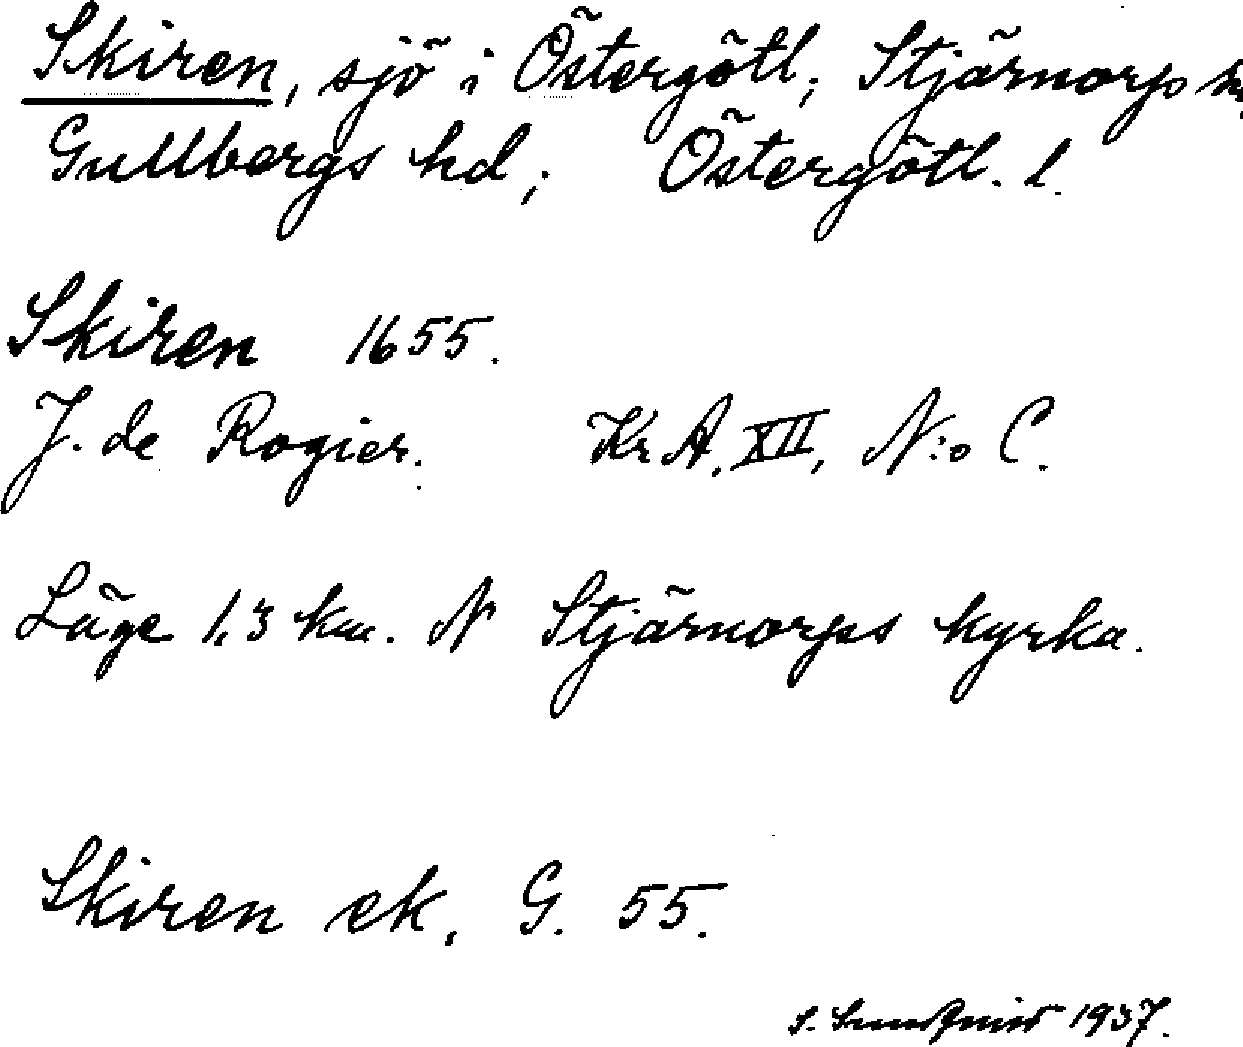 Skiren, sjö i Östergötl; Stjärnorps
Gullbergs hd; Östergötl. l.
Skiren 1655.
J. de Rogier. Kr A, XII, N:o C.
Läge 1,3 km. N Stjärnorps kyrka.
Skiren ek, G. 55.
S. 1937.